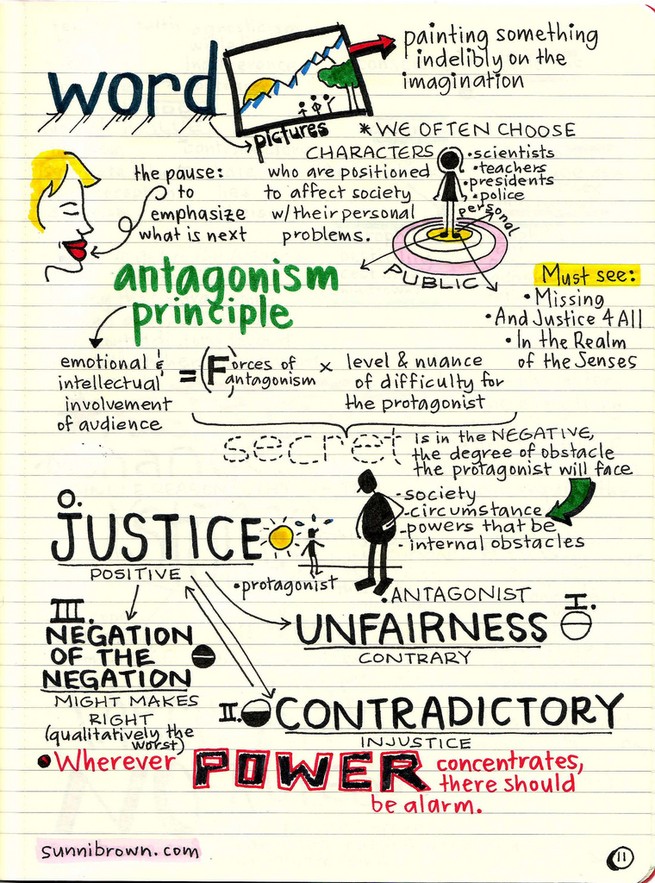 word
pictures
painting something
indelibly on the
imagination
* WE OFTEN CHOOSE
CHARACTERS
who are positioned
to affect society
w/their personal
problems.
• scientists
• teachers
• presidents
• police
personal
PUBLIC
the pause:
to
emphasize
what is next
antagonism
principle
Must see:
• Missing
• And Justice 4 All
• In the Realm
of the Senses
emotional &
intellectual
involvement
of audience
= (Forces of
antagonism
×
level & nuance
of difficulty for
the protagonist
secret
is in the NEGATIVE,
the degree of obstacle
the protagonist will face
- society
- circumstance
- powers that be
- internal obstacles
O.
JUSTICE
POSITIVE
• protagonist
• ANTAGONIST
I.
UNFAIRNESS
CONTRARY
III.
NEGATION
OF THE
NEGATION
MIGHT MAKES
RIGHT
(qualitatively the
worst)
II.
CONTRADICTORY
INJUSTICE
• Wherever POWER concentrates,
there should
be alarm.
sunnibrown.com
11